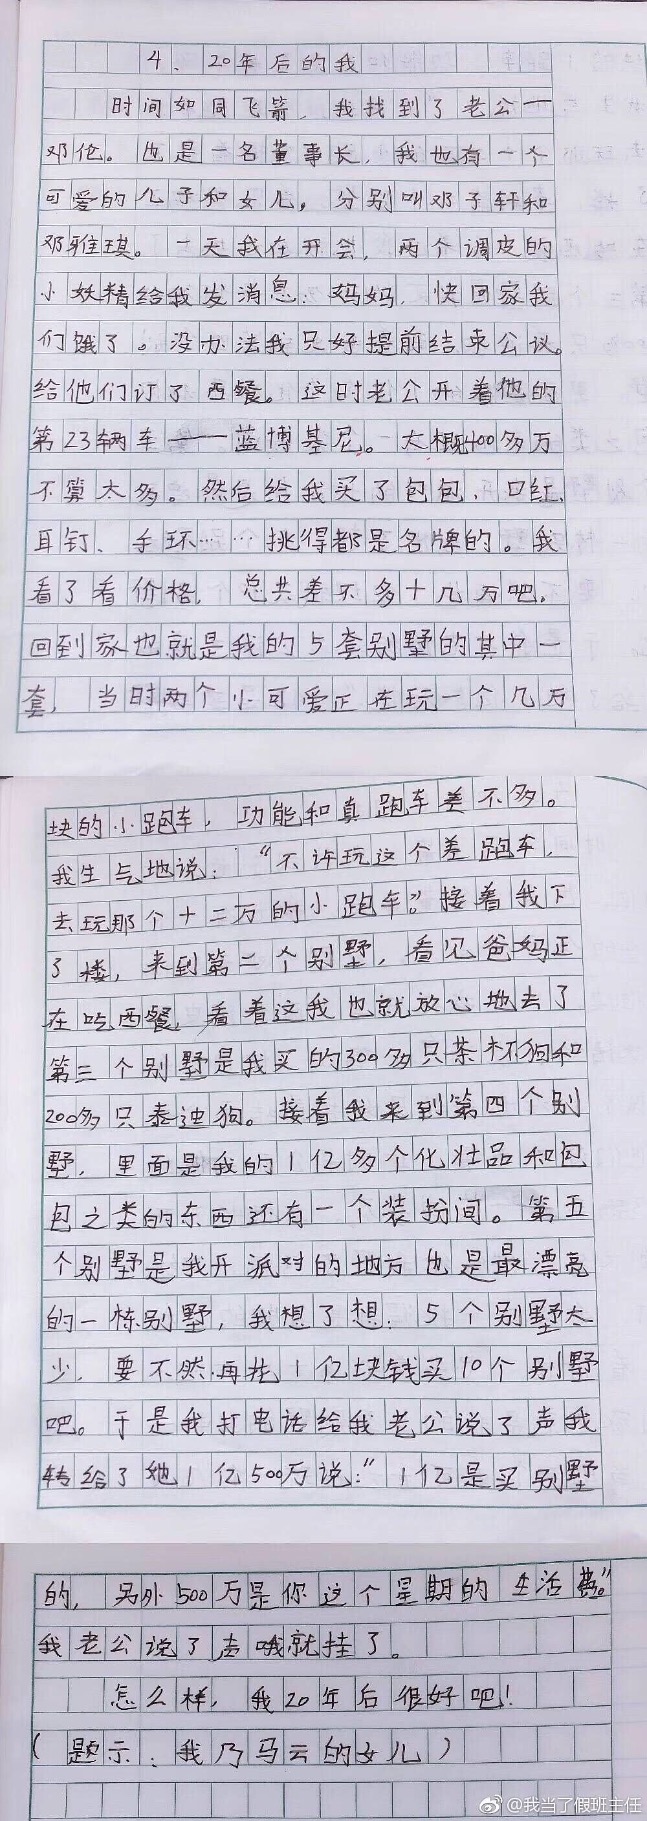 4、20年后的我
时间如同飞箭，我找到了老公一
邓伦。他是一名董事长，我也有一个
可爱的儿子和女儿，分别叫邓子轩和
邓雅琪。一天我在开会，两个调皮的
小妖精给我发消息：妈妈，快回家我
们饿了。没办法我只好提前结束公议。
给他们订了西餐。这时老公开着他的
第23辆车——蓝博基尼。大概400多万
不算太多。然后给我买了包包、口红、
耳钉、手环……挑得都是名牌的。我
看了看价格，总共差不多十几万吧，
回到家也就是我的5套别墅的其中一
套，当时两个小可爱正在玩一个几万
块的小跑车，功能和真跑车差不多。
我生气地说：“不许玩这个差跑车，
去玩那个十二万的小跑车。”接着我下
了楼，来到第二个别墅，看见爸妈正
在吃西餐，看着这我也就放心地去了
第三个别墅是我买的300多只茶杯狗和
200多只泰迪狗。接着我来到第四个别
墅，里面是我的1亿多个化壮品和包
包之类的东西还有一个装扮间。第五
个别墅是我开派对的地方也是最漂亮
的一栋别墅，我想了想：5个别墅太
少，要不然再花1亿块钱买10个别墅
吧。于是我打电话给我老公说了声我
转给了她1亿500万说：“1亿是买别墅
的，另外500万是你这个星期的生活费。”
我老公说了声哦就挂了。
怎么样，我20年后很好吧！
（题示：我乃马云的女儿）
@我当了假班主任